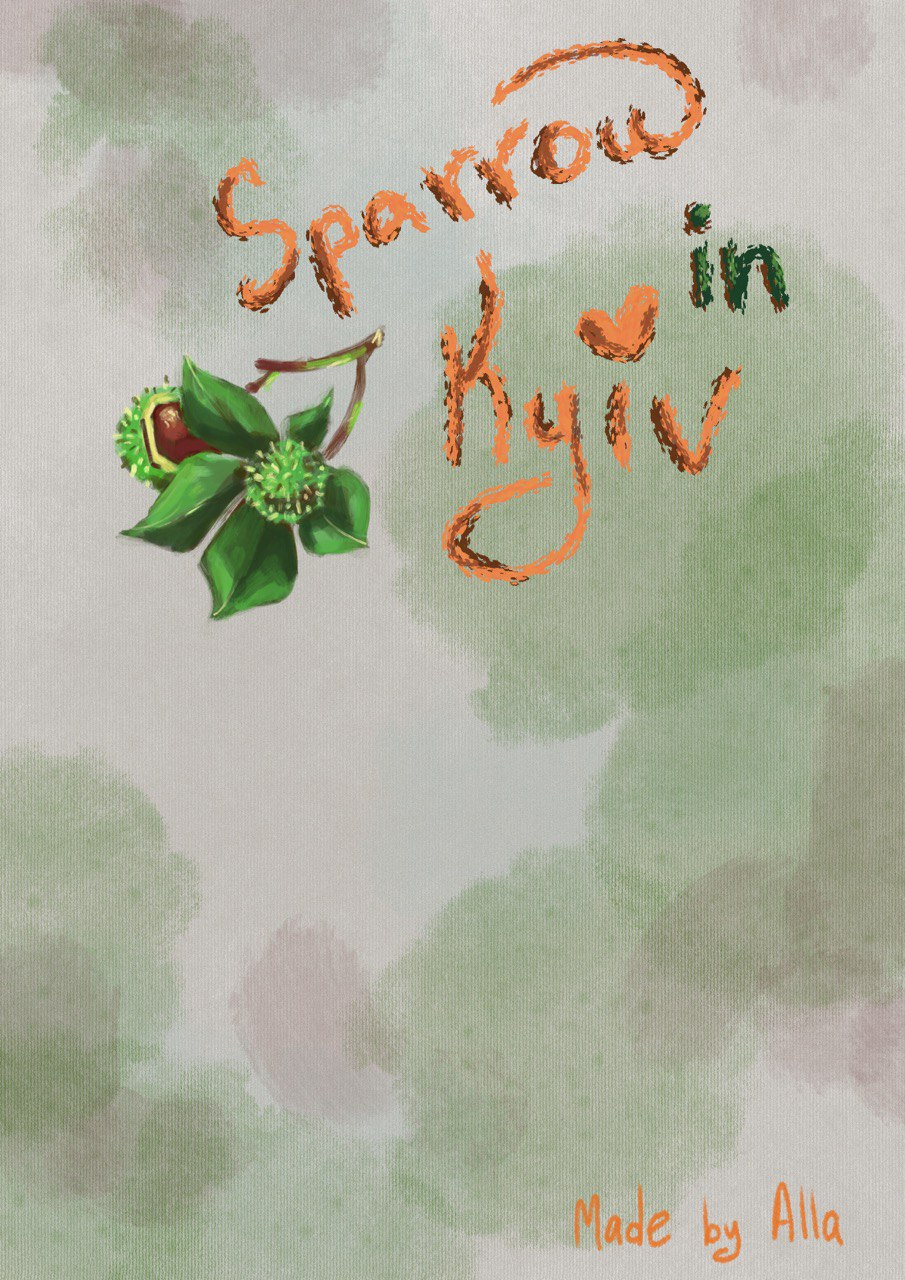 Sparrow
in
Kyiv
Made by Alla